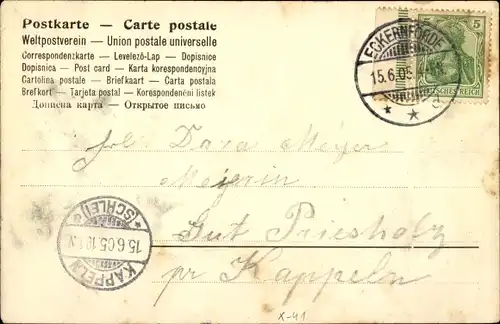 Postkarte — Carte postale
Weltpostverein — Union postale universelle
Correspondenzkarte — Levelező-Lap — Dopisnice
Dopisnica — Post card — Karta korespondencyjna
Cartolina postale — Briefkaart — Carta postala
Brefkort — Tarjeta postal — Korespondenéni listek
Дописна карта — Открытое письмо
ECKERNFÖRDE
15.6.05
5
5
DEUTSCHES REICH
Frl. Dora Meyer
Meyerin
Gut Priesholz
pr Kappeln
KAPPELN
15.6.05
(SCHLEI)
X-41